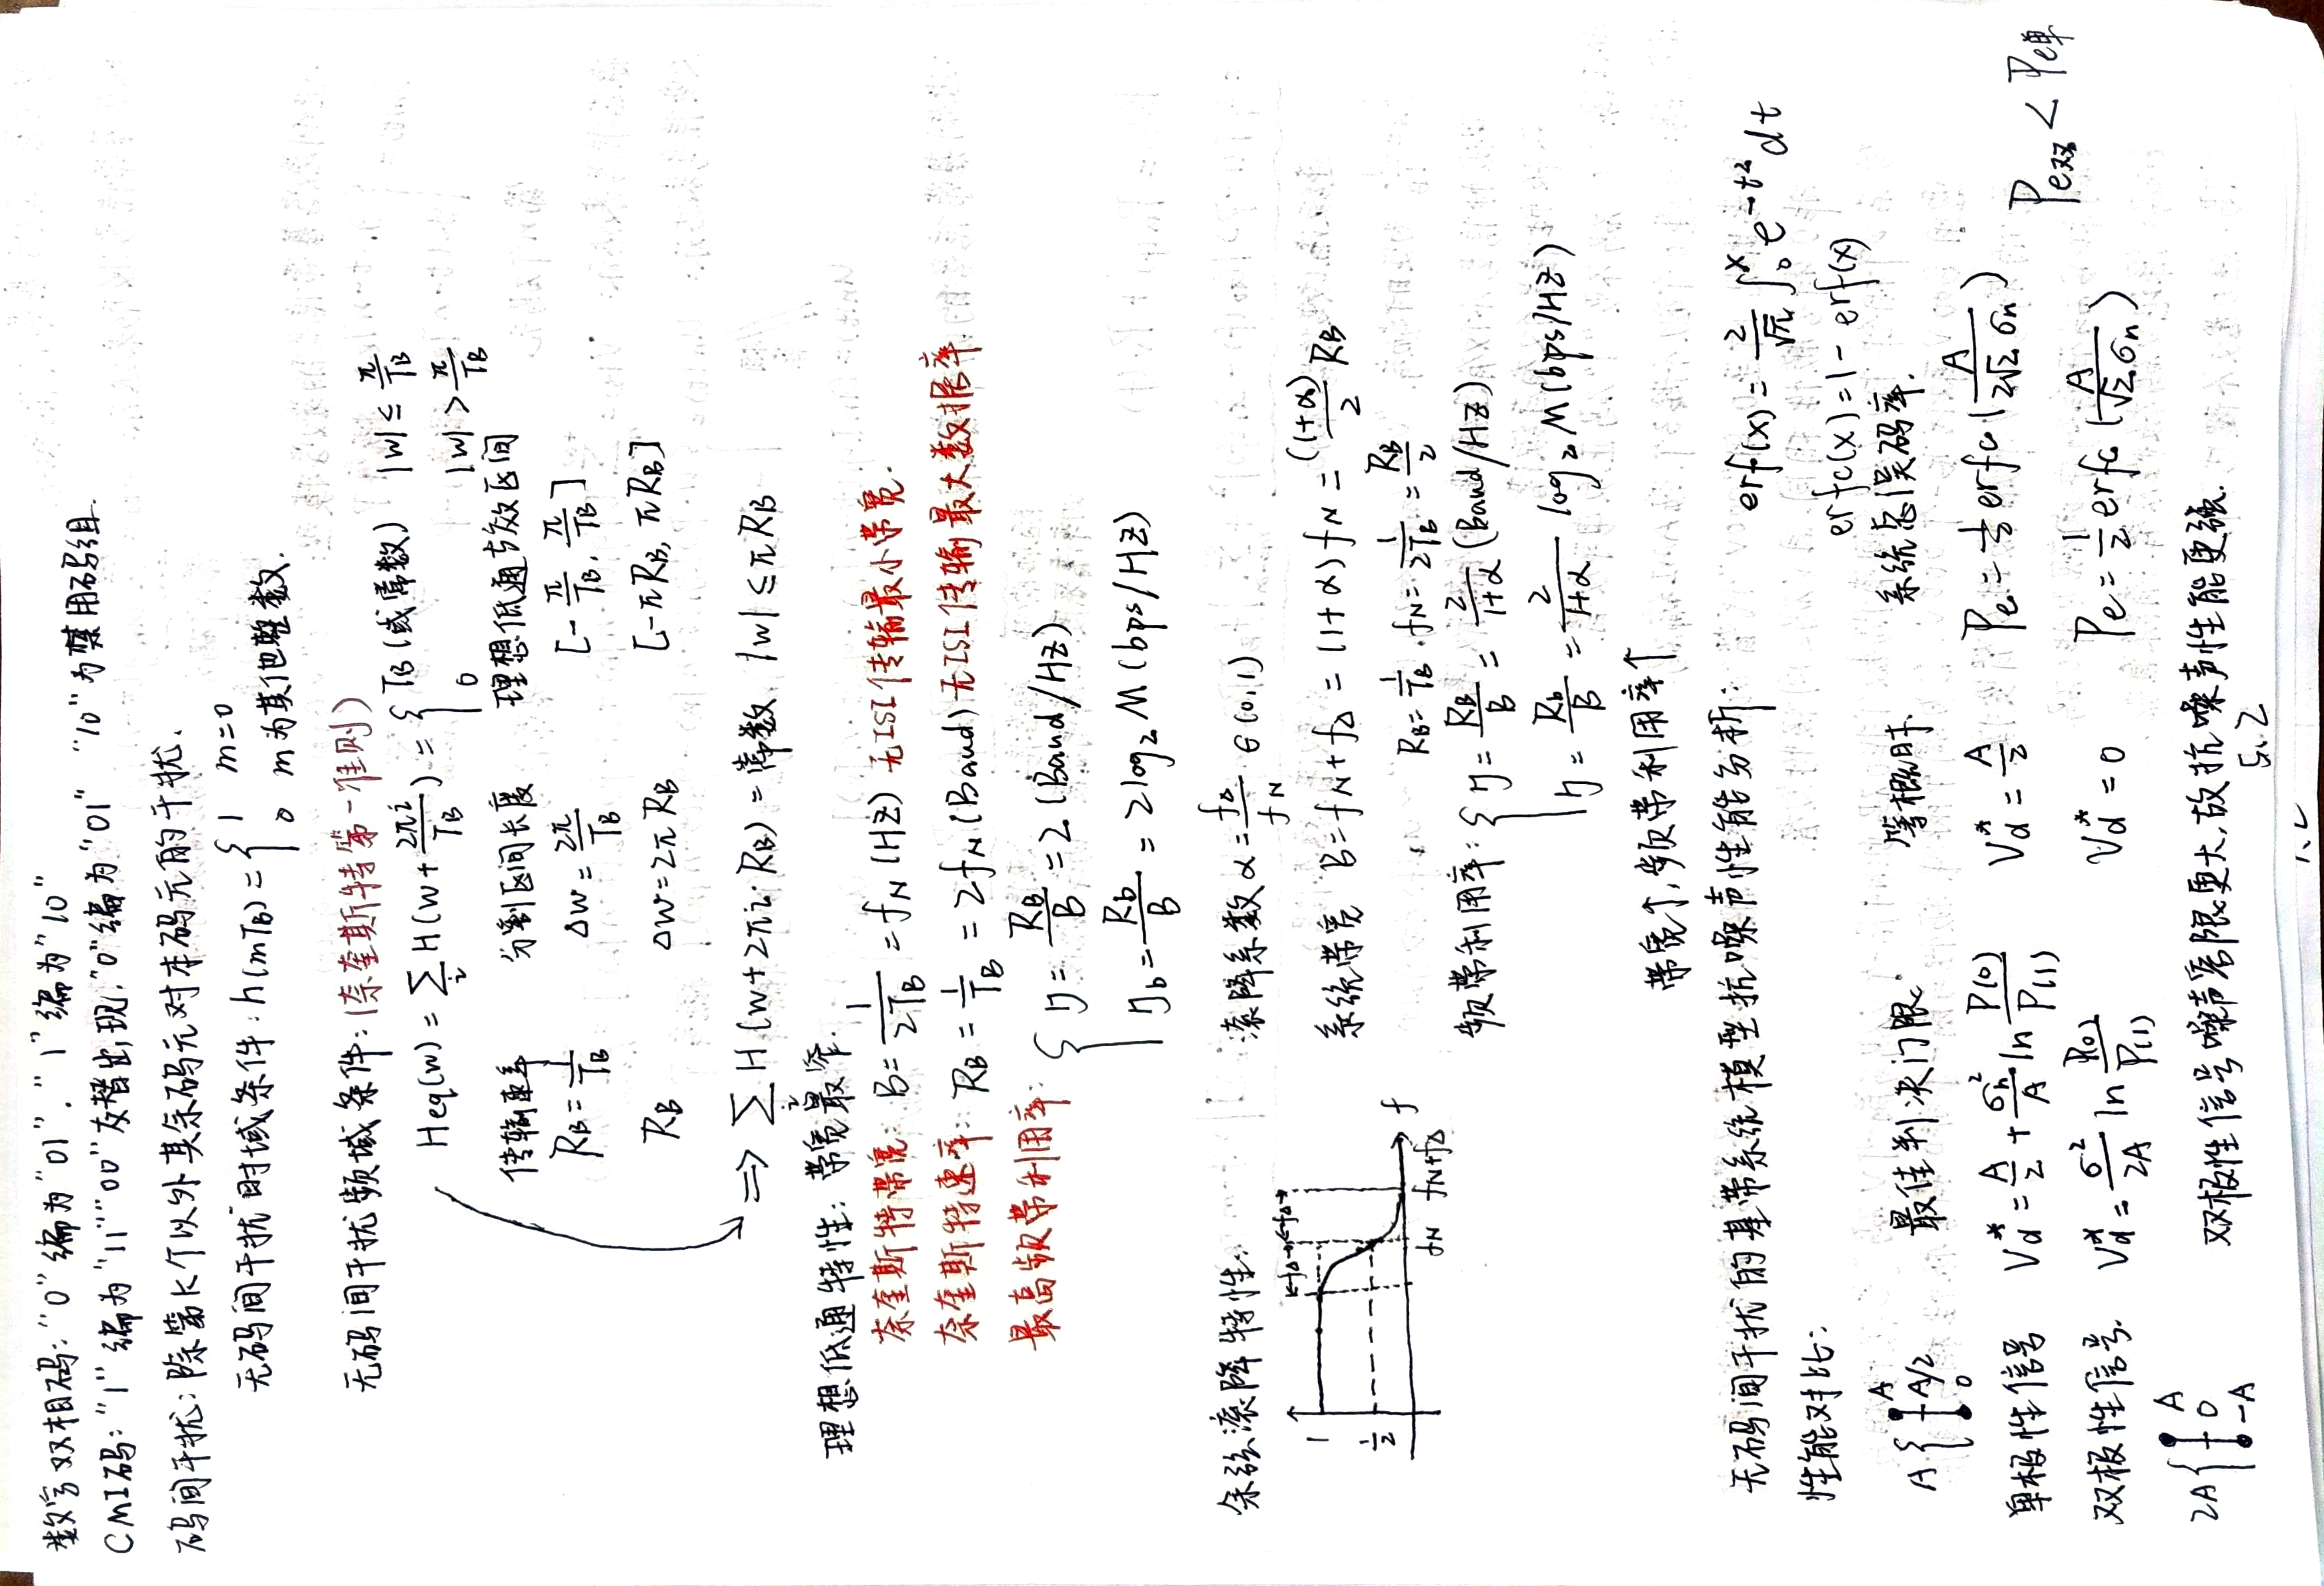 数字双相码:"0"编为"01"."1"编为"10"
CMI码:"1"编为"11""00"交替出现,"0"编为"01" "10"为禁用码组.
码间干扰:除第k个以外其余码元对本码元的干扰.
无码间干扰时域条件:h(mTB)={1 m=0
0 m为其他整数.
无码间干扰频域条件:(奈奎斯特第一准则)
Heq(w)=∑i H(w+2πi/TB)={TB(或常数) |w|≤π/TB
0 |w|>π/TB
传输速率 分割区间长度 理想低通等效区间
RB=1/TB Δw=2π/TB [-π/TB,π/TB]
RB Δw=2πRB [-πRB,πRB]
⇒ ∑i H(w+2πi·RB)=常数 |w|≤πRB
理想低通特性:带宽最窄.
奈奎斯特带宽: B=1/2TB=fN(HZ) 无ISI传输最小带宽.
奈奎斯特速率: RB=1/TB=2fN(Baud) 无ISI传输最大数据率.
最高频带利用率: {η=RB/B=2(Baud/HZ)
ηb=Rb/B=2log2M(bps/HZ)
余弦滚降特性:
滚降系数α=fΔ/fN∈(0,1)
1 fΔ fΔ
1/2
fN fN+fΔ f
系统带宽 B=fN+fΔ=(1+α)fN=(1+α)/2 RB
RB=1/TB.fN=1/2TB=RB/2
频带利用率:{η=RB/B=2/1+α(Baud/HZ)
η=Rb/B=2/1+α log2M(bps/HZ)
带宽↑,频带利用率↑
无码间干扰的基带系统模型抗噪声性能分析:
erf(x)=2/√π ∫0^x e^-t² dt
性能对比:
erfc(x)=1-erf(x)
A{A
A/2
0
最佳判决门限: 等概时. 系统总误码率.
单极性信号 Vd*=A/2+σn²/A ln P(0)/P(1) Vd*=A/2 Pe=1/2erfc(A/2√2σn)
Pe双<Pe单
双极性信号. Vd*=σ²/2A ln P(0)/P(1) Vd*=0 Pe=1/2erfc(A/√2σn)
2A{A
0
-A
双极性信号噪声容限更大,故抗噪声性能更强.
5.2